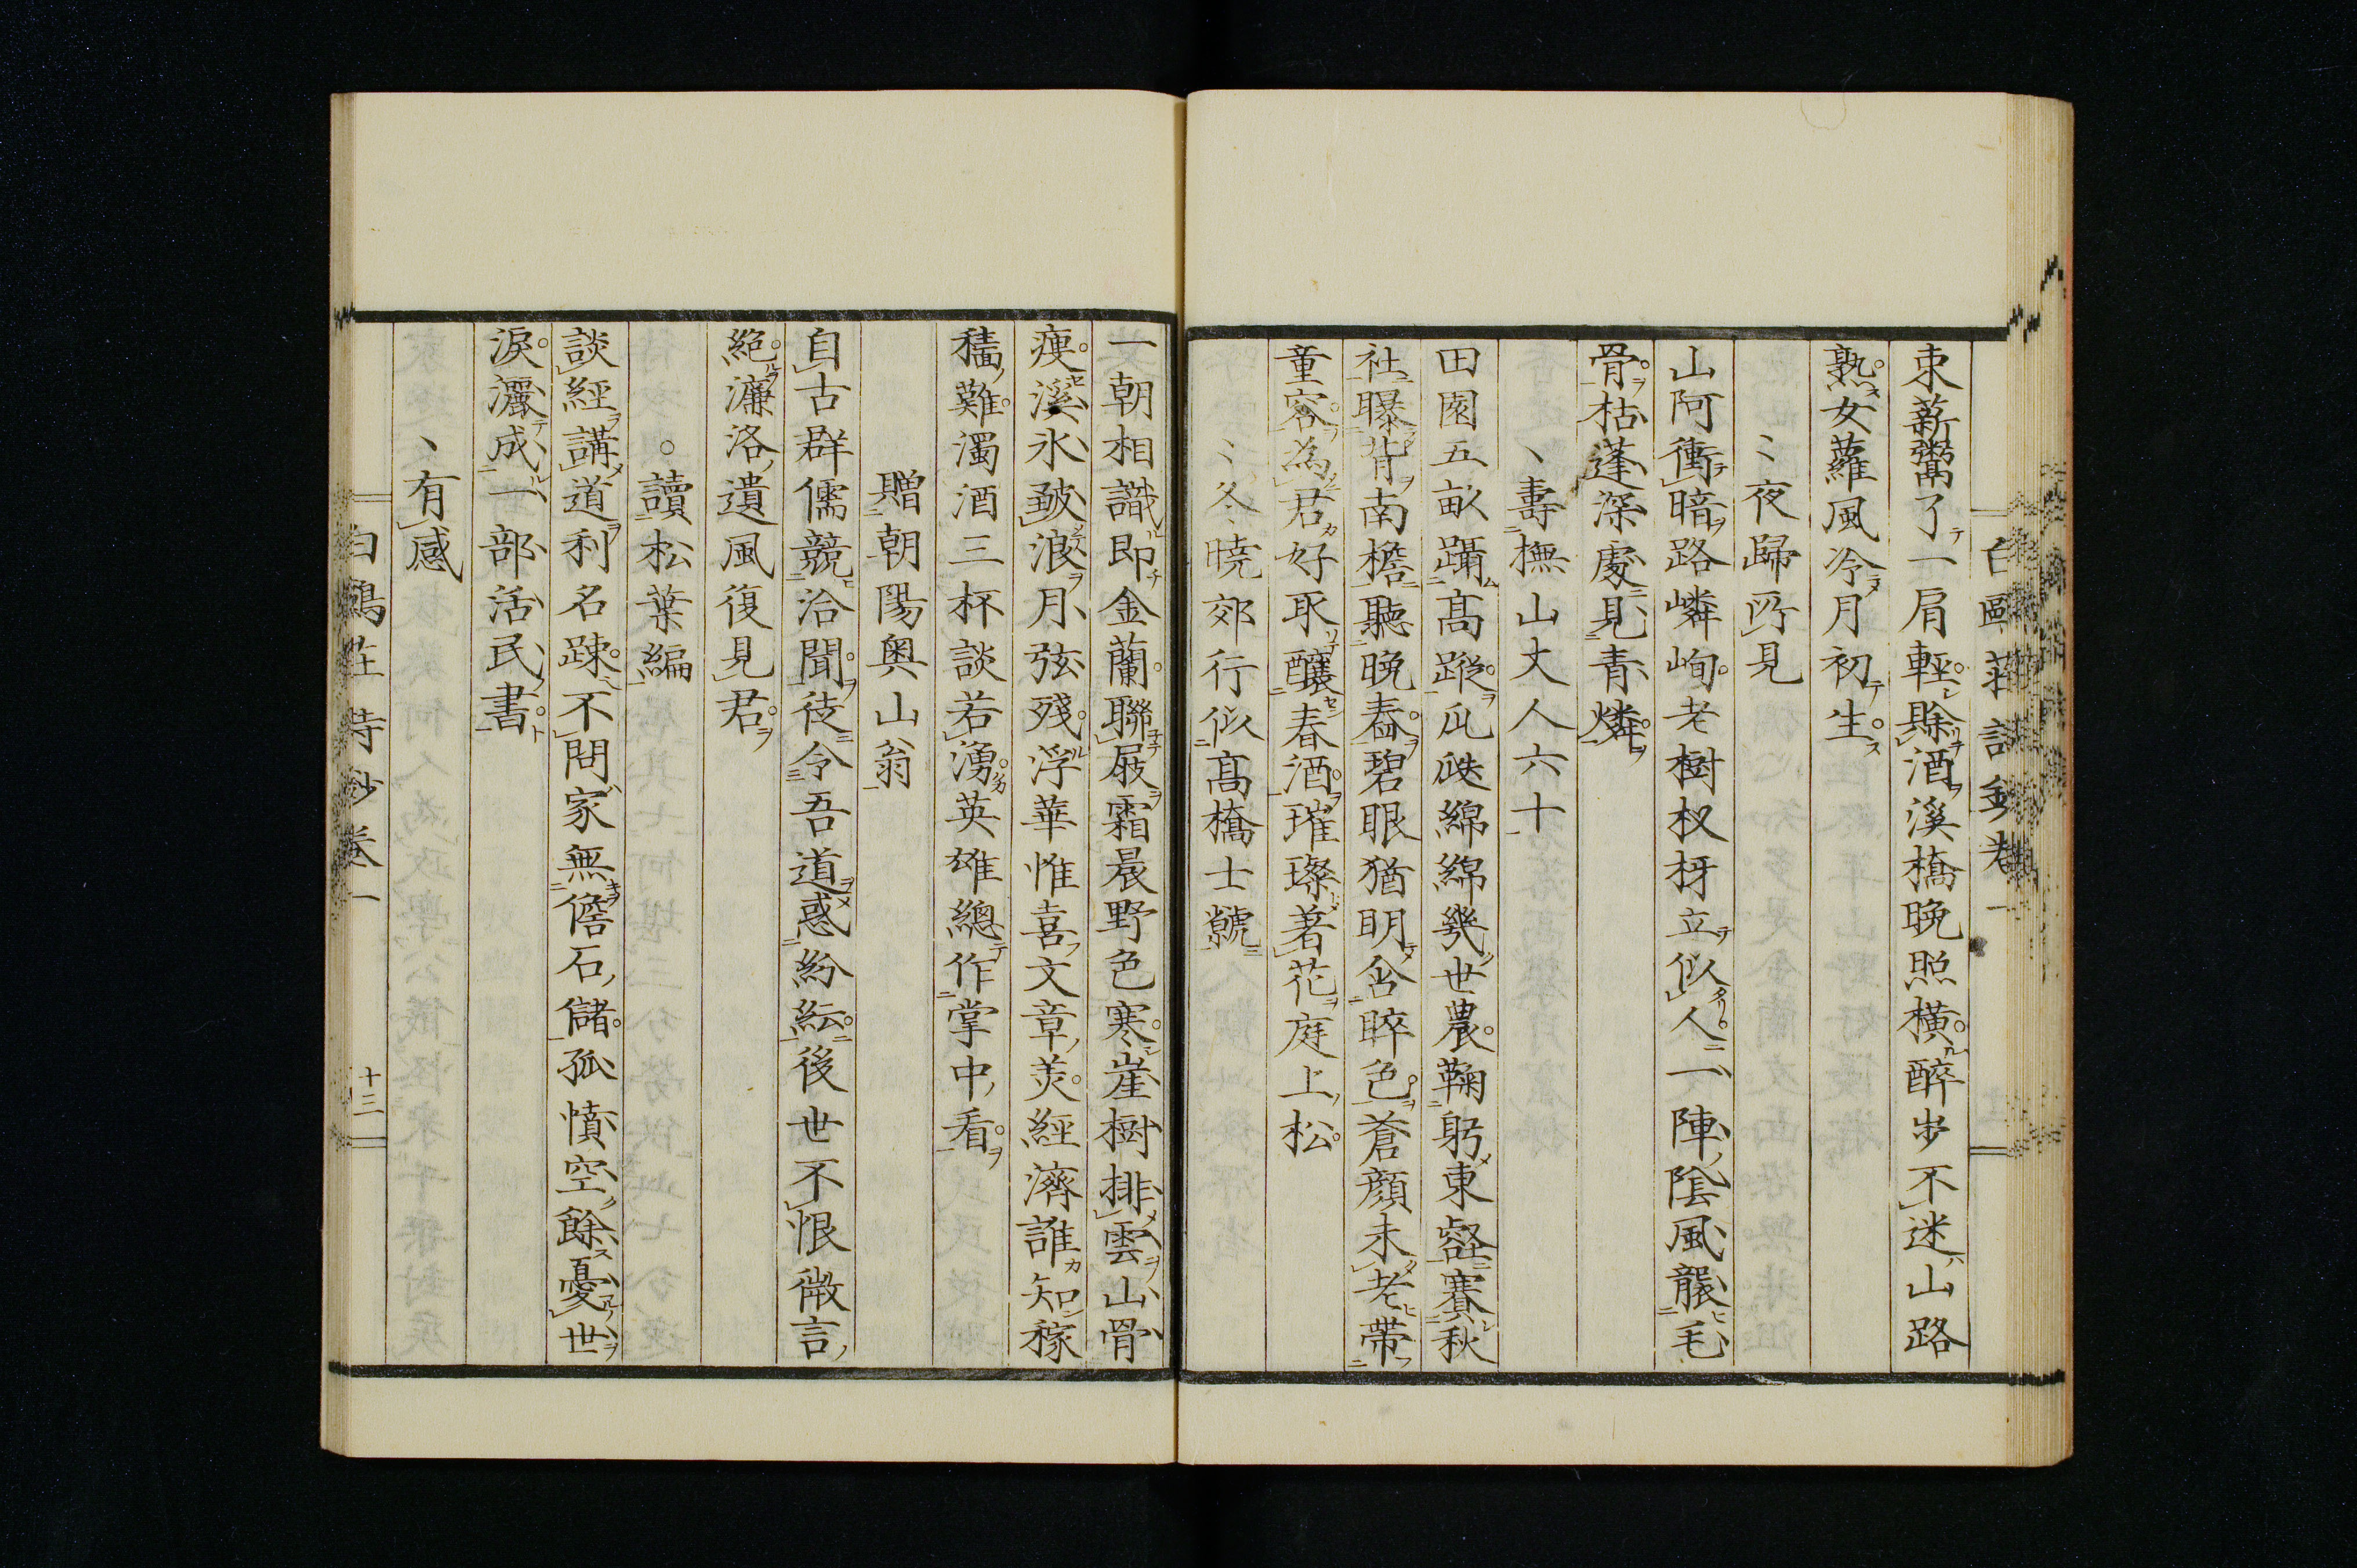 束薪鬻了一肩輕賖酒溪橋晚照橫醉步不迷山路
熟女蘿風冷月初生
夜歸所見
山阿衝暗路嶙峋老樹杈枒立似人一陣陰風襲毛
骨枯蓬深處見青燐
壽撫山丈人六十
田園五畝躡高蹤瓜瓞綿綿幾世農鞠躬東壑賽秋
社曝背南檐聽晚舂碧眼猶明含睟色蒼顏未老帶
童容為君好取釀春酒璀璨著花庭上松
冬曉郊行似高橋士虩
一朝相識即金蘭聯屐霜晨野色寒崖樹排雲山骨
瘦溪氷皴浪月弦殘浮華惟喜文章羙經濟誰知稼
穡難濁酒三杯談若湧英雄總作掌中看
贈朝陽奥山翁
自古群儒競洽聞徒令吾道惑紛紜後世不恨微言
絶濂洛遺風復見君
讀松葉編
談經講道利名踈不問家無儋石儲孤憤空餘憂世
淚灑成一部活民書
有感
白鷗莊詩鈔卷一 十三